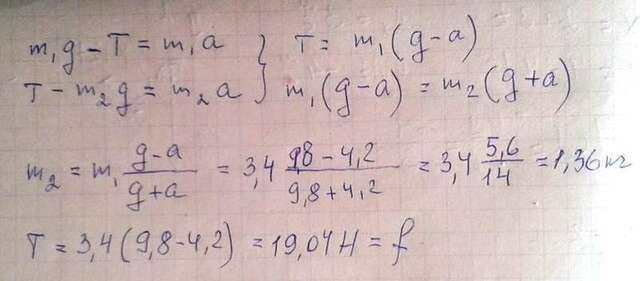 m₁g - T = m₁a } T = m₁(g-a)
T - m₂g = m₂a } m₁(g-a) = m₂(g+a)
m₂ = m₁ (g-a)/(g+a) = 3,4 (9,8-4,2)/(9,8+4,2) = 3,4 5,6/14 = 1,36 кг
T = 3,4(9,8-4,2) = 19,04 H = f